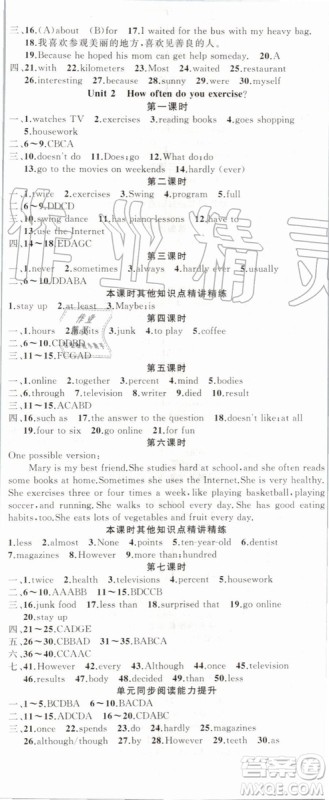 三、16.(A)about (B)for 17.I waited for the bus with my heavy bag.
18.我喜欢参观美丽的地方,喜欢看见善良的人。
19.Because he hoped his mom can get help someday.
四、21.with 22.kilometers 23.Most 24.waited 25.restaurant
26.interested 27.because 28.sunny 29.were 30.myself
Unit 2 How often do you exercise?
第一课时
一、1.watches TV 2.exercises 3.reading books 4.goes shopping
5.housework
二、6~9.CBCA
三、10.doesn't do 11.How often does 12.What does;do
13.go to the movies on weekends 14.hardly (ever)
第二课时
一、1.twice 2.exercises 3.Swing 4.program 5.full
二、6~9.DDCD
三、10.swing dance 11.has piano lessons 12.How come
13.use the Internet
四、14~18.EDAGC
第三课时
一、1.never 2.sometimes 3.always 4.hardly ever 5.usually
二、6~10.DDABA
本课时其他知识点精讲精练
1.stay up 2.at least 3.Maybe;is
第四课时
一、1.hours 2.bits 3.junk 4.to play 5.coffee
二、6~10.CDDBB
三、11~15.FCGAD
第五课时
一、1.online 2.together 3.percent 4.mind 5.bodies
二、6.although 7.through 8.body 9.such 10.dentist
三、11~15.ACABD
四、16.such as 17.the answer to the question 18.doesn't like;at all
19.four to six 20.go online 21.for fun
第六课时
One possible version:
Mary is my best friend. She studies hard at school, and she often reads
some books at home. Sometimes she uses the Internet. She is very healthy.
She exercises three or four times a week, like playing basketball, playing
soccer, and running. And she walks to school every day. She has good
habits, too. She eats lots of vegetables and fruit every day.
本课时其他知识点精讲精练
1.less 2.almost 3.points 4.ten-year-old 5.dentist
7.magazines 8.However 9.more than;hundred
第七课时
一、1.twice 2.health 3.television 4.percent 5.housework
二、6~10.AAABB 11~15.BDCCB
三、16.junk food 17.less than 18.surprised that 19.go online
20.stay up
四、21~25.CADGE
五、26~30.CBBAD 31~35.BABCA
六、36~40.CCAAC
七、41.However 42.Every 43.because 44.times 45.with
46.results 47.body 48.decided 49.to do 50.healthy
单元同步阅读能力提升
一、1~5.BCBDA 6~10.BACDA
二、11~14.ADCDA 15~18.DCAB
三、21.once 22.spends 23.do 24.on 25.has
26.although/though 27.dentist 28.television 29.them 30.and